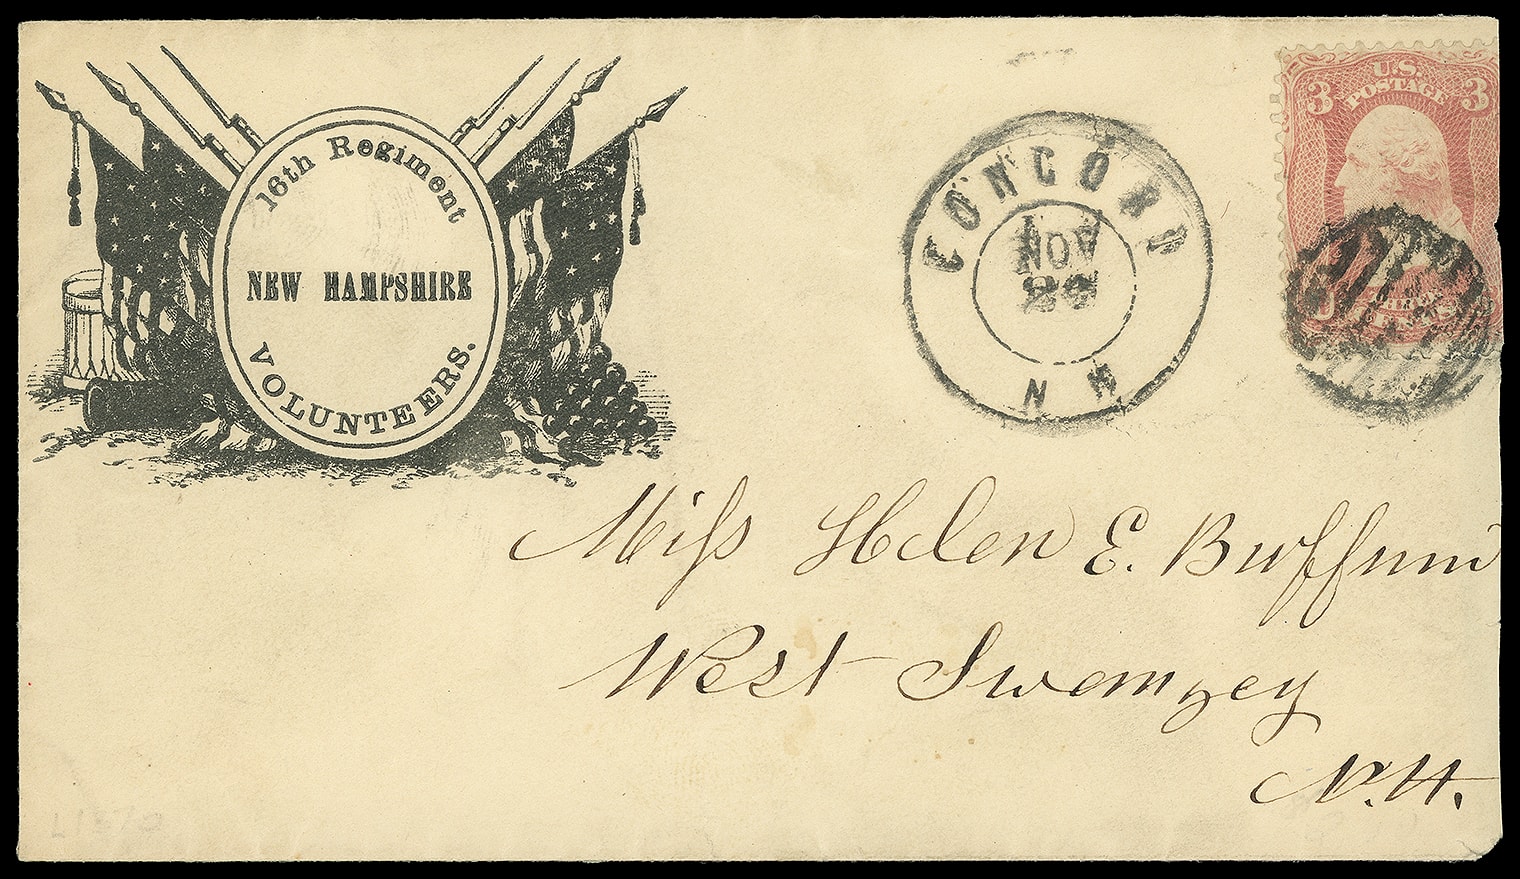 16th Regiment
NEW HAMPSHIRE
VOLUNTEERS.
CONCORD
NOV
N H
U.S.
POSTAGE
3 3
THREE
CENTS
Miss Helen E. Buffum
West Swanzey
N.H.